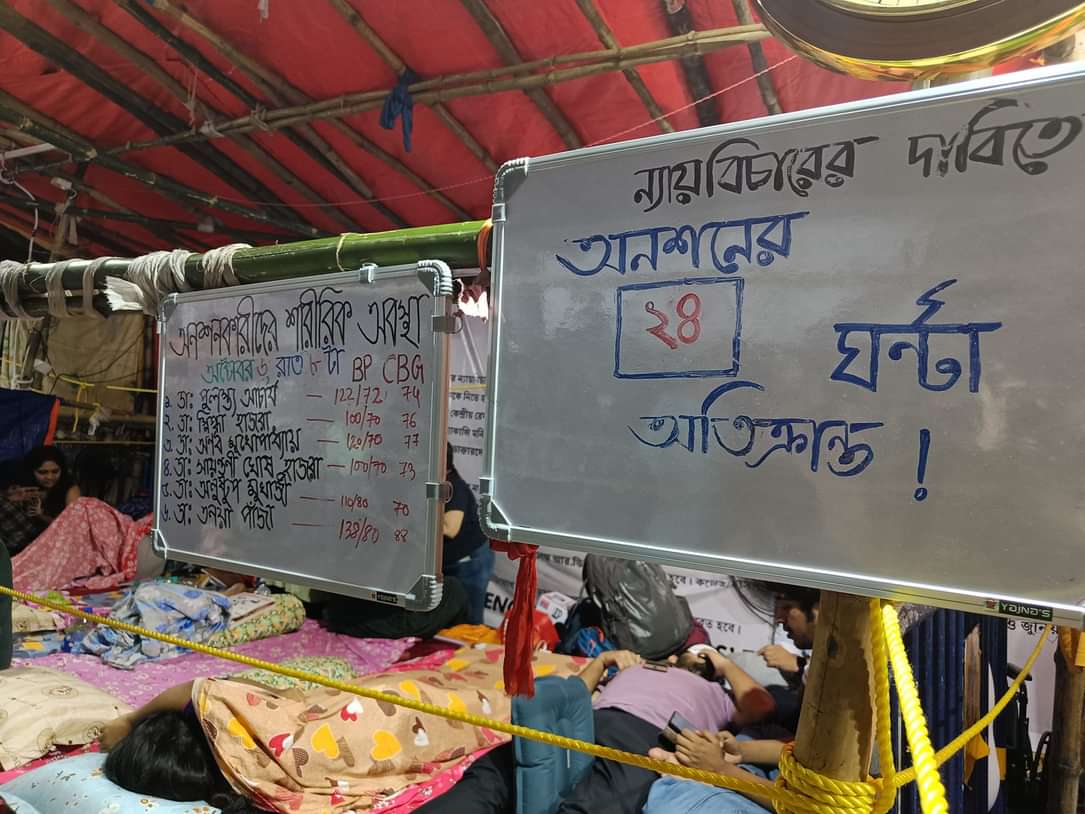 অনশনকারীদের শারীরিক অবস্থা
অক্টোবর ৬ রাত ৮ টা BP CBG
১. ডাঃ পুলস্ত্য আচার্য — 122/72 74
২. ডাঃ স্নিগ্ধা হাজরা — 100/70 76
৩. ডাঃ অর্ণব মুখোপাধ্যায় — 120/70 77
৪. ডাঃ সায়ন্তনী ঘোষ হাজরা — 100/70 73
৫. ডাঃ অনুষ্টুপ মুখার্জী — 110/80 70
৬. ডাঃ তনয়া পাঁজা — 138/80 88
ন্যায়বিচারের দাবিতে
অনশনের
২৪ ঘন্টা
অতিক্রান্ত !
YAJNA'S
হবে।